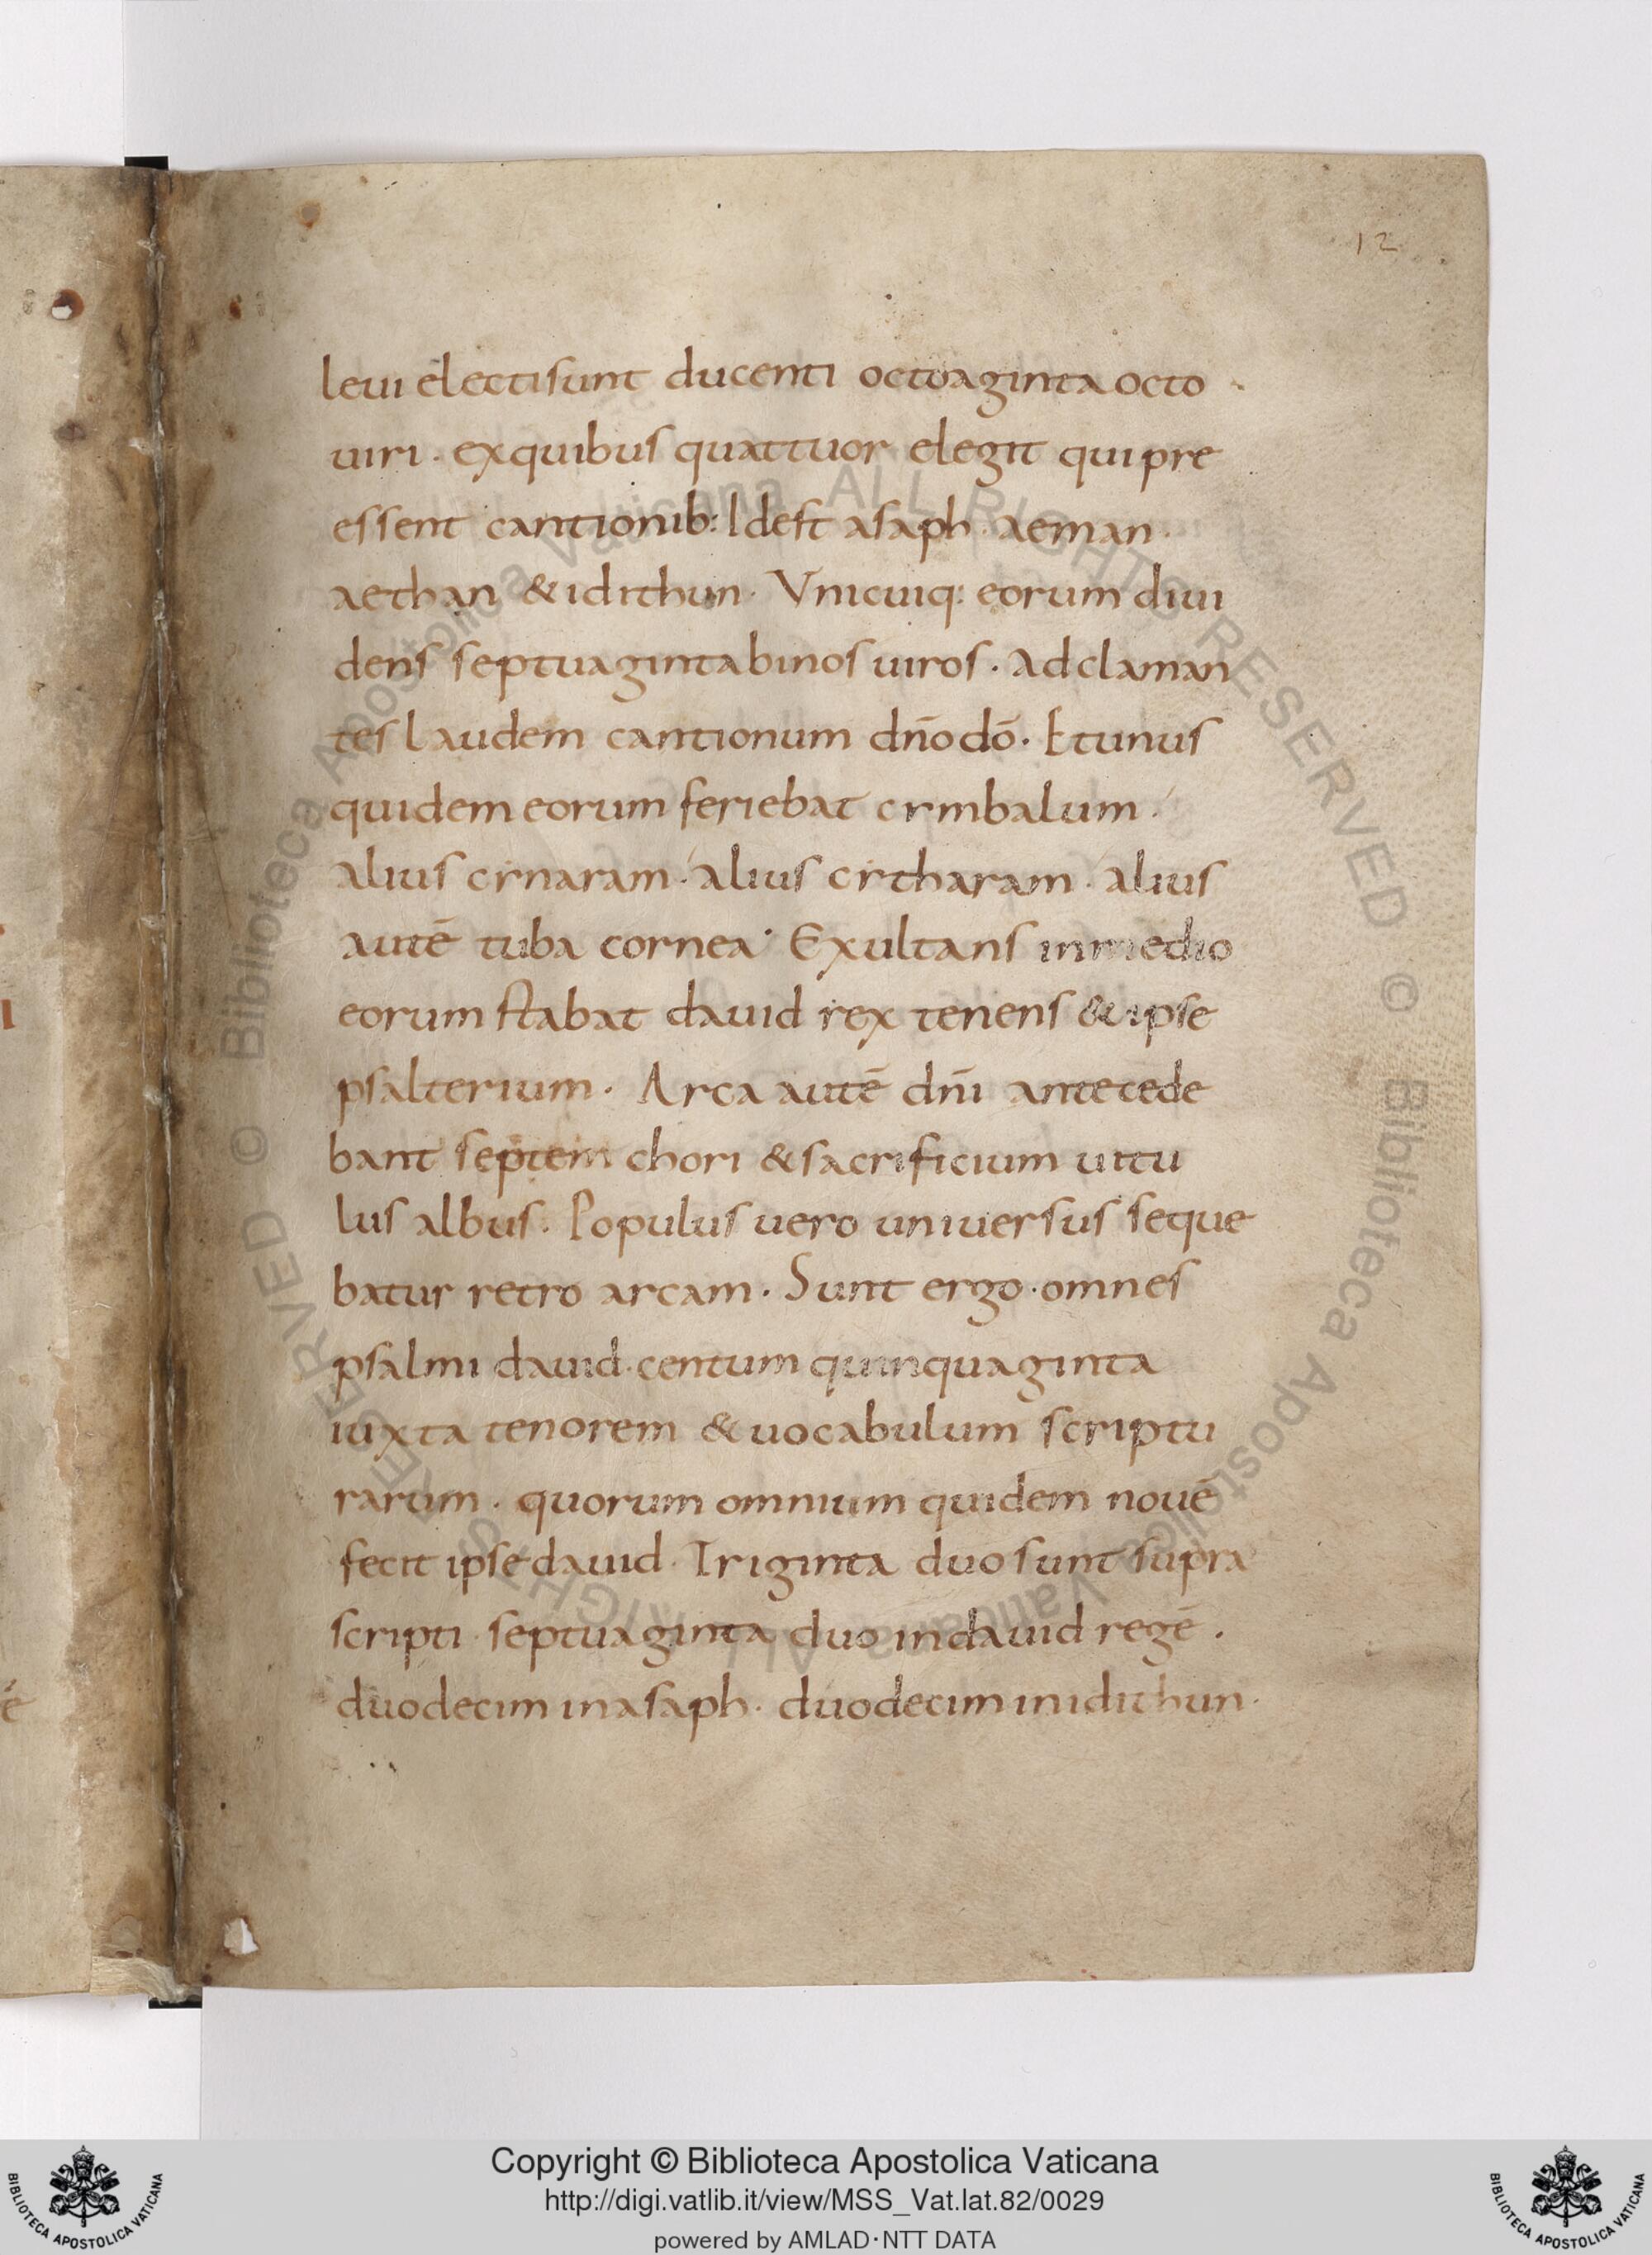 12
leui electi sunt ducenti octoaginta octo
uiri. ex quibus quattuor elegit qui pre
essent cantionib: Idest asaph. aeman.
aethan & idithun. Vnicuiq: eorum diui
dens septuaginta binos uiros. Adclaman
tes Laudem cantionum dn̄o dō. Et unus
quidem eorum feriebat cymbalum.
alius cynaram. alius cytharam. alius
autē tuba cornea. Exultans in medio
eorum stabat dauid rex tenens & ipse
psalterium. Arca autē dn̄i antecede
bant septem chori & sacrificium uitu
lus albus. Populus uero uniuersus seque
batur retro arcam. Sunt ergo. omnes
psalmi dauid. centum quinquaginta
iuxta tenorem & uocabulum scriptu
rarum. quorum omnium quidem nouē
fecit ipse dauid. Triginta duo sunt supra
scripti. septuaginta duo in dauid regē.
duodecim in asaph. duodecim in idithun.
Copyright © Biblioteca Apostolica Vaticana
http://digi.vatlib.it/view/MSS_Vat.lat.82/0029
powered by AMLAD·NTT DATA